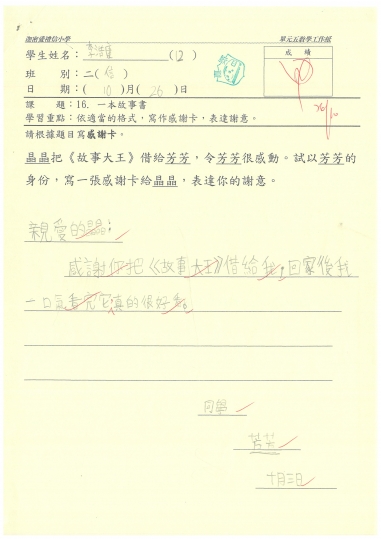 迦密愛禮信小學 單元五教學工作紙
學生姓名：李浩 (12) 成績
班 別：二(信)
日 期：(10)月(26)日
課 題：16. 一本故事書
學習重點：依適當的格式，寫作感謝卡，表達謝意。
請根據題目寫感謝卡。
晶晶把《故事大王》借給芳芳，令芳芳很感動。試以芳芳的
身份，寫一張感謝卡給晶晶，表達你的謝意。
親愛的晶晶：
感謝你把《故事大王》借給我，回家後我
一口氣看完它真的很好看。
同學
芳芳
十月三日